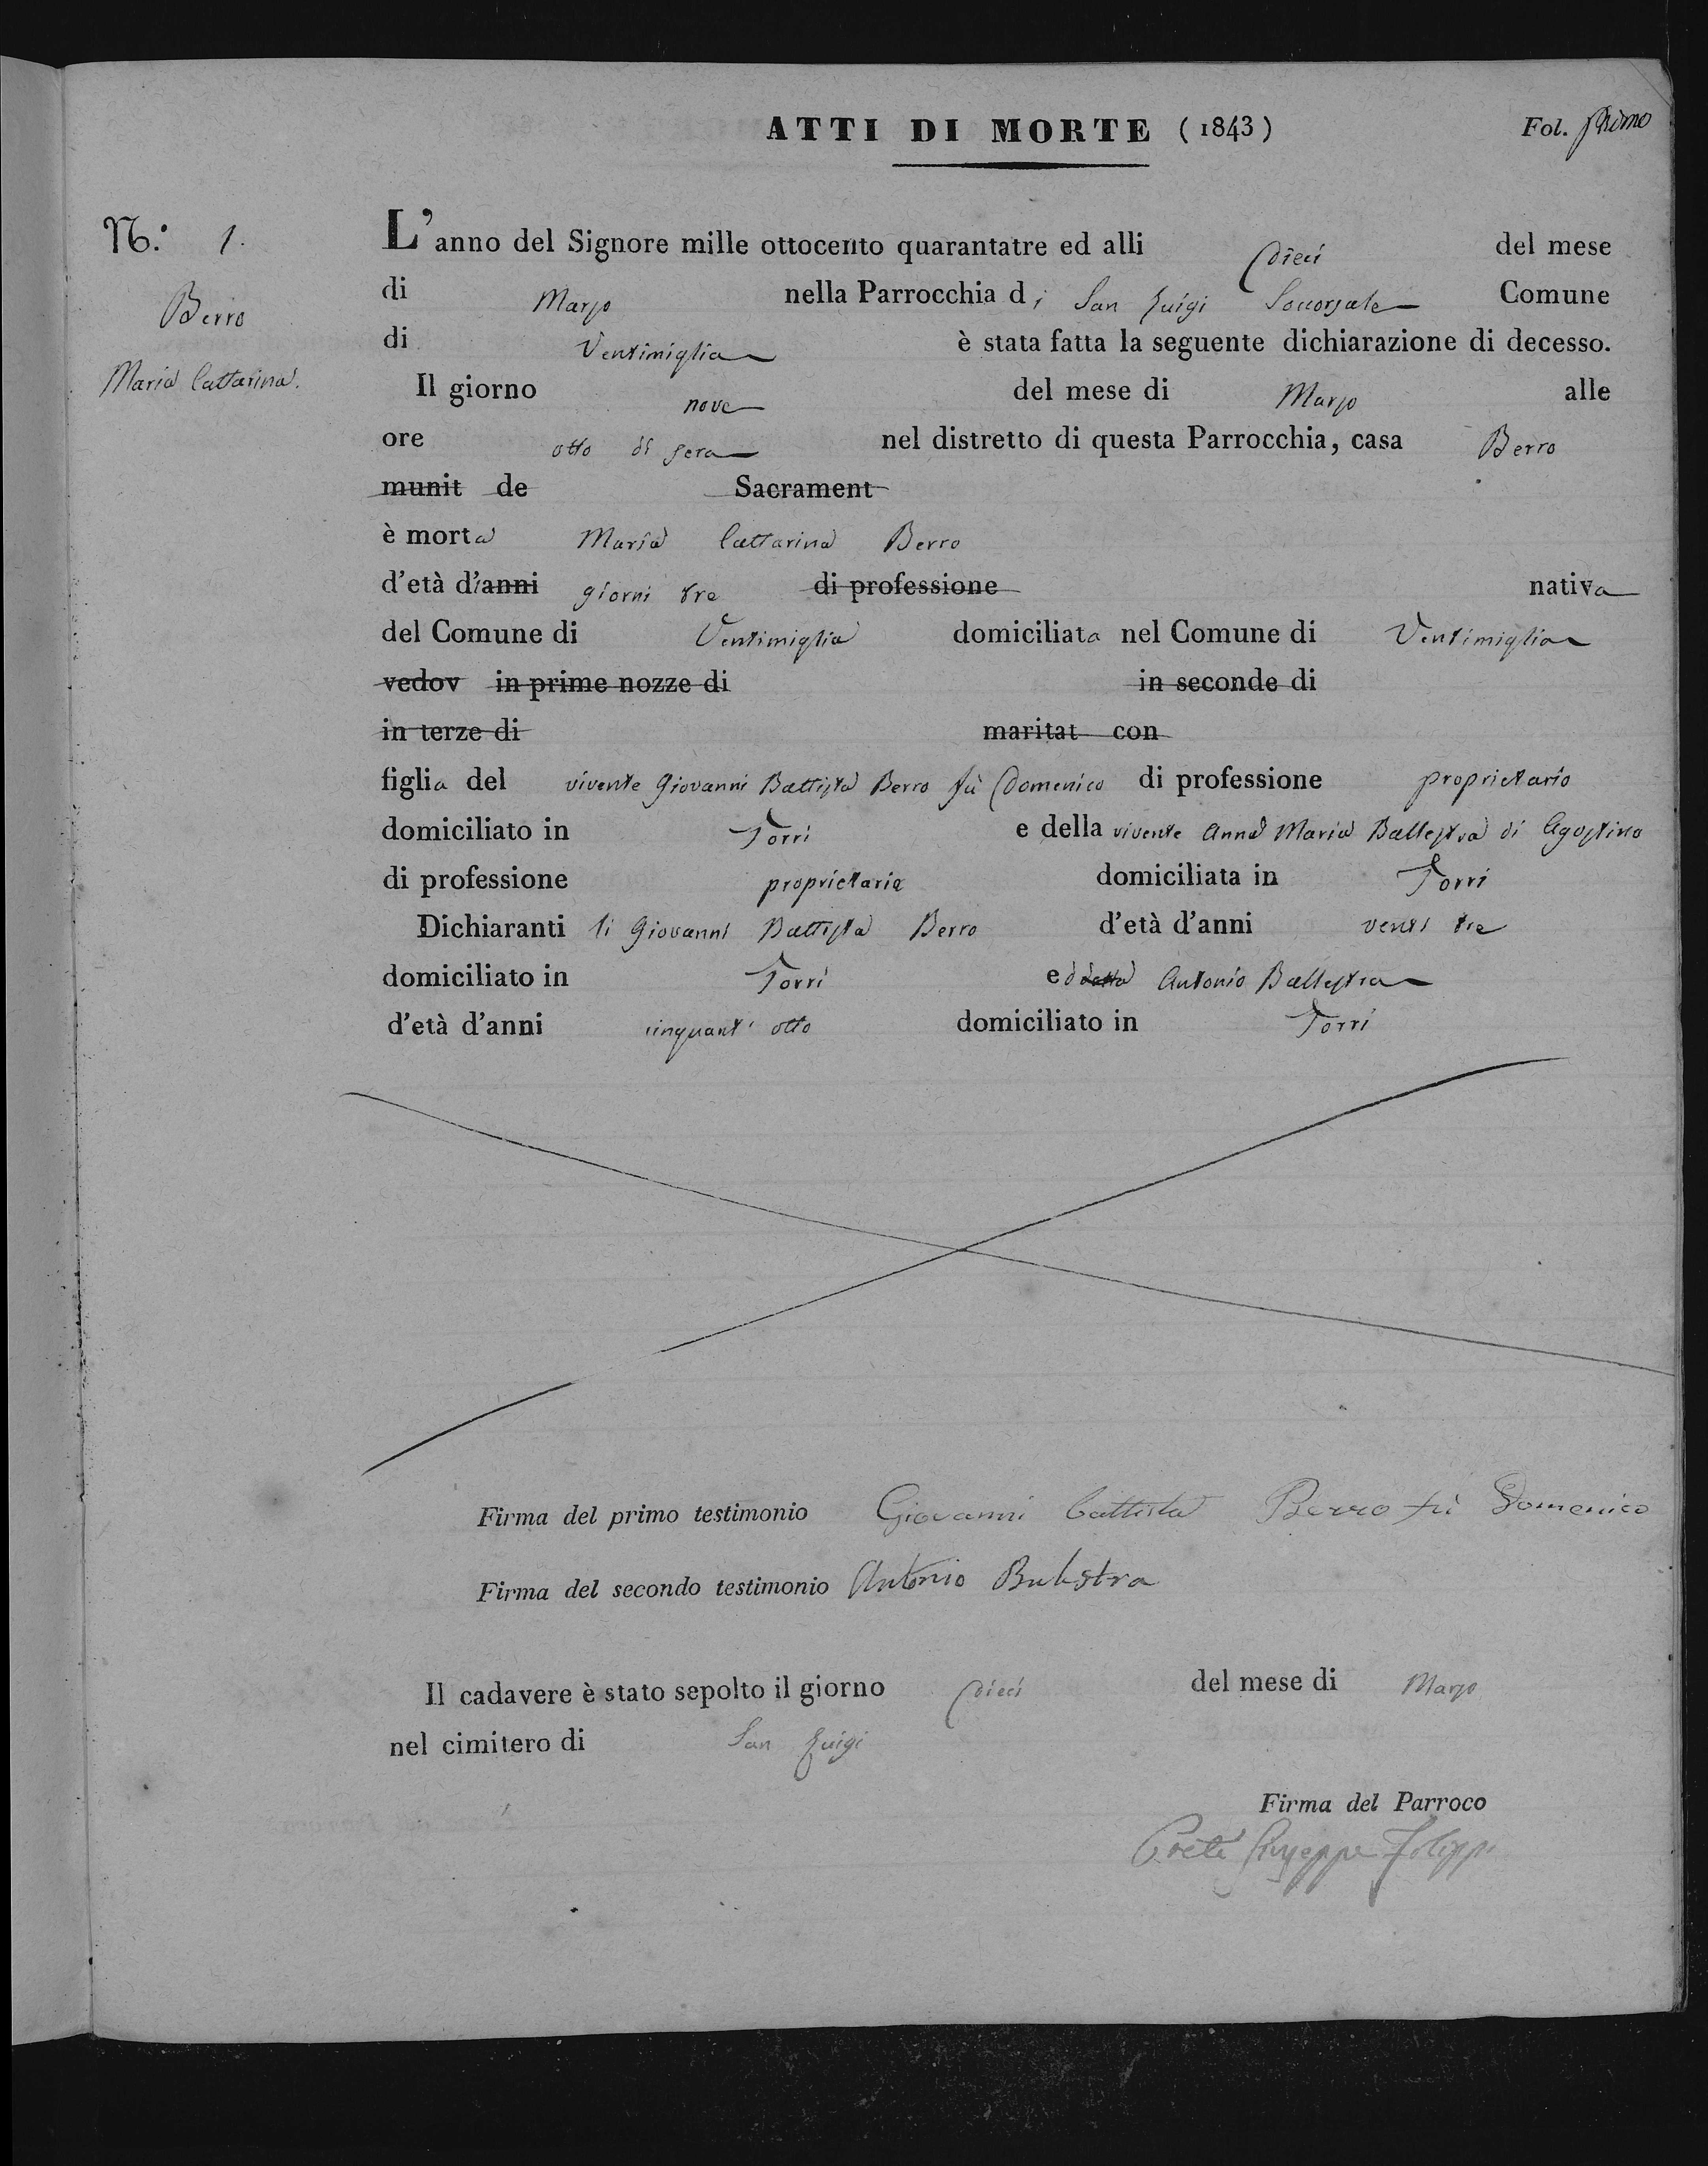 ATTI DI MORTE (1843) Fol. Primo
N.º 1.
Berro
Maria Cattarina.
L'anno del Signore mille ottocento quarantatre ed alli Dieci del mese
di Marzo nella Parrocchia di San Luigi Soccorsale Comune
di Ventimiglia è stata fatta la seguente dichiarazione di decesso.
Il giorno nove del mese di Marzo alle
ore otto di sera nel distretto di questa Parrocchia, casa Berro
munit de Sacrament
è morta Maria Cattarina Berro
d'età di anni giorni tre di professione nativa
del Comune di Ventimiglia domiciliata nel Comune di Ventimiglia
vedov in prime nozze di in seconde di
in terze di maritat con
figlia del vivente Giovanni Battista Berro fù Domenico di professione proprietario
domiciliato in Torri e della vivente Anna Maria Ballestra di Agostino
di professione proprietaria domiciliata in Torri
Dichiaranti li Giovanni Battista Berro d'età d'anni venti tre
domiciliato in Torri ed Antonio Ballestra
d'età d'anni cinquant'otto domiciliato in Torri
Firma del primo testimonio Giovanni Battista Berro fù Domenico
Firma del secondo testimonio Antonio Balestra
Il cadavere è stato sepolto il giorno Dieci del mese di Marzo
nel cimitero di San Luigi
Firma del Parroco
Prete Giuseppe Filippi